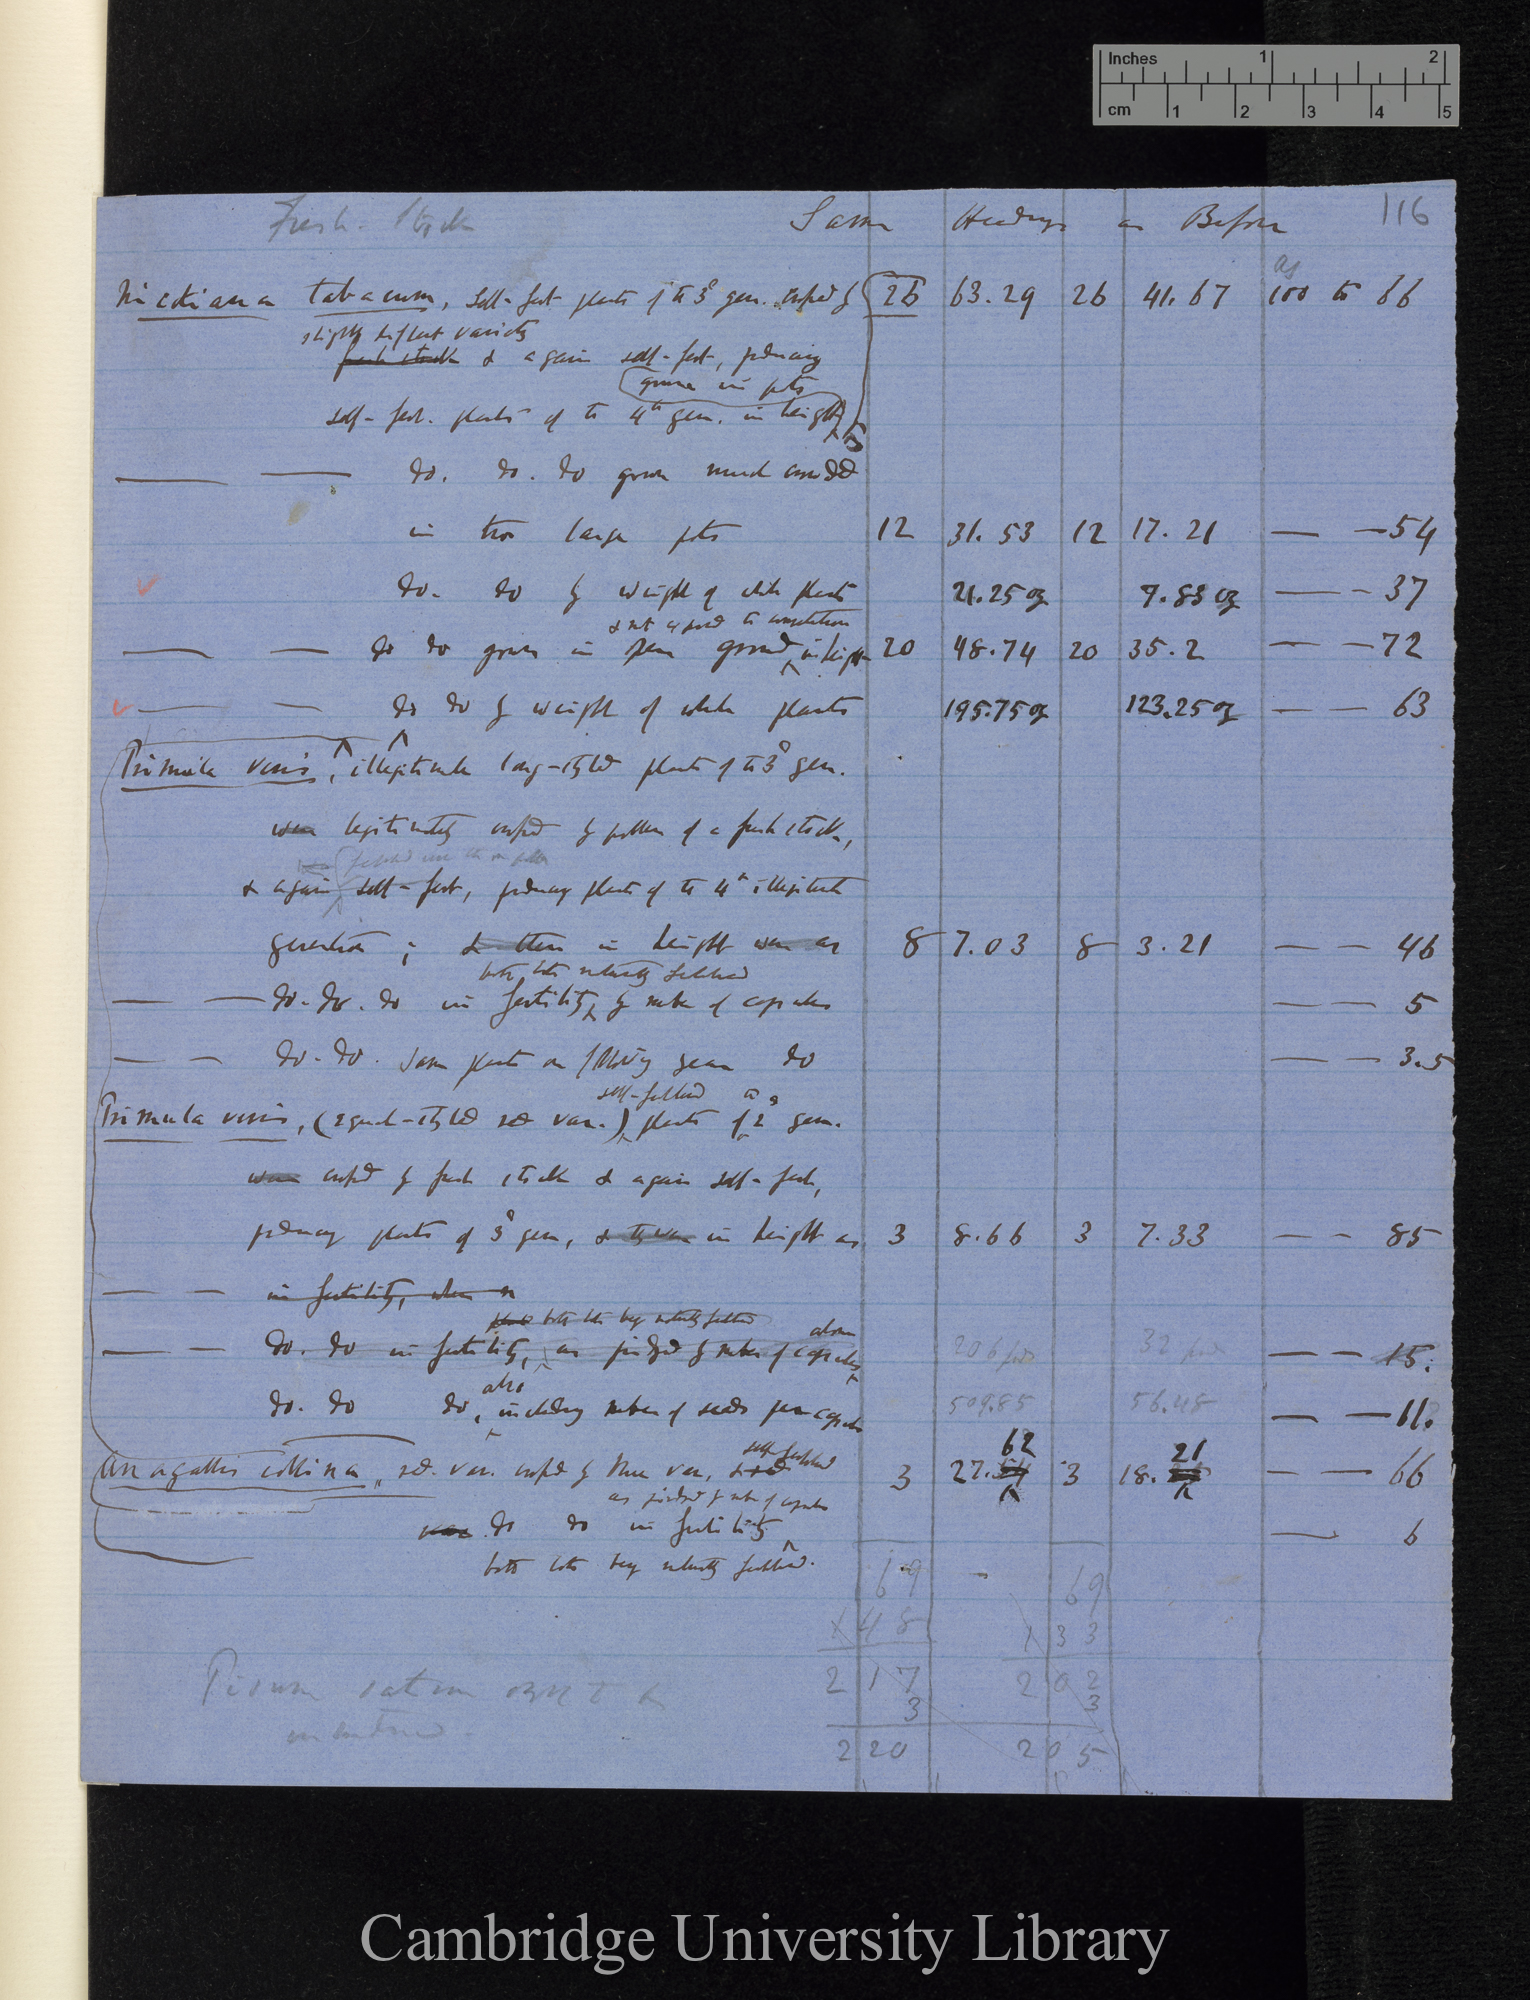 Inches 1 2
cm 1 2 3 4 5
116
Fresh Stock Same Headings as Before
as
Nicotiana tabacum, self-fert plants of the 3d gen. crossed by 26 63.29 26 41.67 100 to 66
slightly different variety
fresh stock & again self-fert, producing
grown in pots
self-fert. plants of the 4th gen. in height
do. do. do grown much crowded
in two large pots 12 31.53 12 17.21 — — 54
do. do by weight of whole plants 21.25 oz 7.83 oz — — 37
& not exposed to competition
— — do do grown in open ground, in height 20 48.74 20 35.2 — — 72
— — do do by weight of whole plants 195.75 oz 123.25 oz — — 63
Primula veris, illegitimate long-styled plants of the 3d gen.
were legitimately crossed by pollen of a fresh stock,
& again self-fert, producing plants of the 4th illegitimate
generation; & these in height were as 8 7.03 8 3.21 — — 46
both lots naturally fertilised
— — do. do. do in fertility, by number of capsules — — 5
— — do. do. same plants on following year do — — 3.5
self-fertilised the
Primula veris, (equal-styled red var.) plants of 2d gen.
were crossed by fresh stock & again self-fert,
producing plants of 3d gen, & they were in height as 3 8.66 3 7.33 — — 85
— — in fertility, when
both lots being naturally fertilised
alone
— — do. do in fertility, as judged by number of capsules 206 32 — — 15.
also
do. do do, including number of seeds per capsule 509.85 56.48 — — 11.
62 21
self-fertilised
Anagallis collina, red. var. crossed by blue var, 3 27. 3 18. — — 66
as judged by number of capsules
do do in fertility — 6
both lots being naturally fertilised.
69 69
x 48 33
217 202
3 3
220 205
Pisum sativum ought to be
introduced.
Cambridge University Library